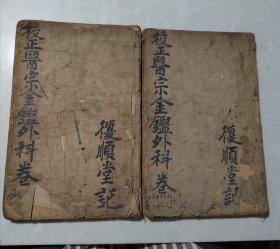 校正醫宗金鑑外科卷
復順堂記
校正醫宗金鑑外科卷
復順堂記